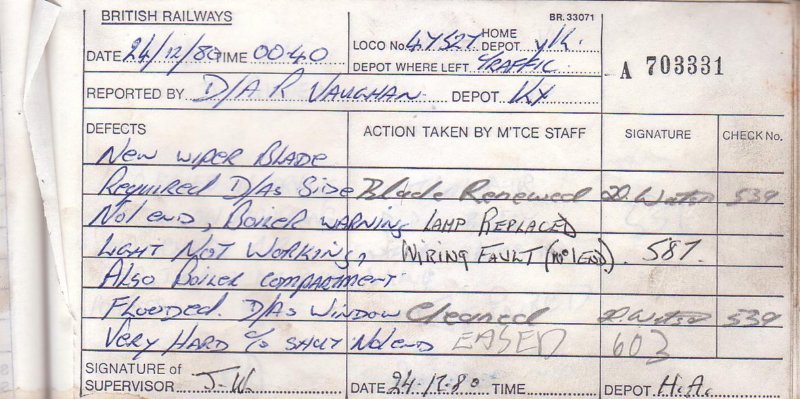 BRITISH RAILWAYS BR. 33071
DATE 24/12/80 TIME 00.40 LOCO No. 47527 HOME DEPOT YK.
DEPOT WHERE LEFT TRAFFIC
A 703331
REPORTED BY D/A R VAUGHAN DEPOT KX
DEFECTS ACTION TAKEN BY M'TCE STAFF SIGNATURE CHECK No.
NEW WIPER BLADE
Required D/As Side Blade Renewed D. 539
No1 end, Boiler WARNING LAMP REPLACED
LIGHT NOT WORKING, WIRING FAULT (No1 END). 587.
Also Boiler compartment
FLOODED. D/As WINDOW Cleaned D. 539
VERY HARD SHUT No1 end EASED 603
SIGNATURE OF SUPERVISOR J.W. DATE 24.12.80 TIME DEPOT